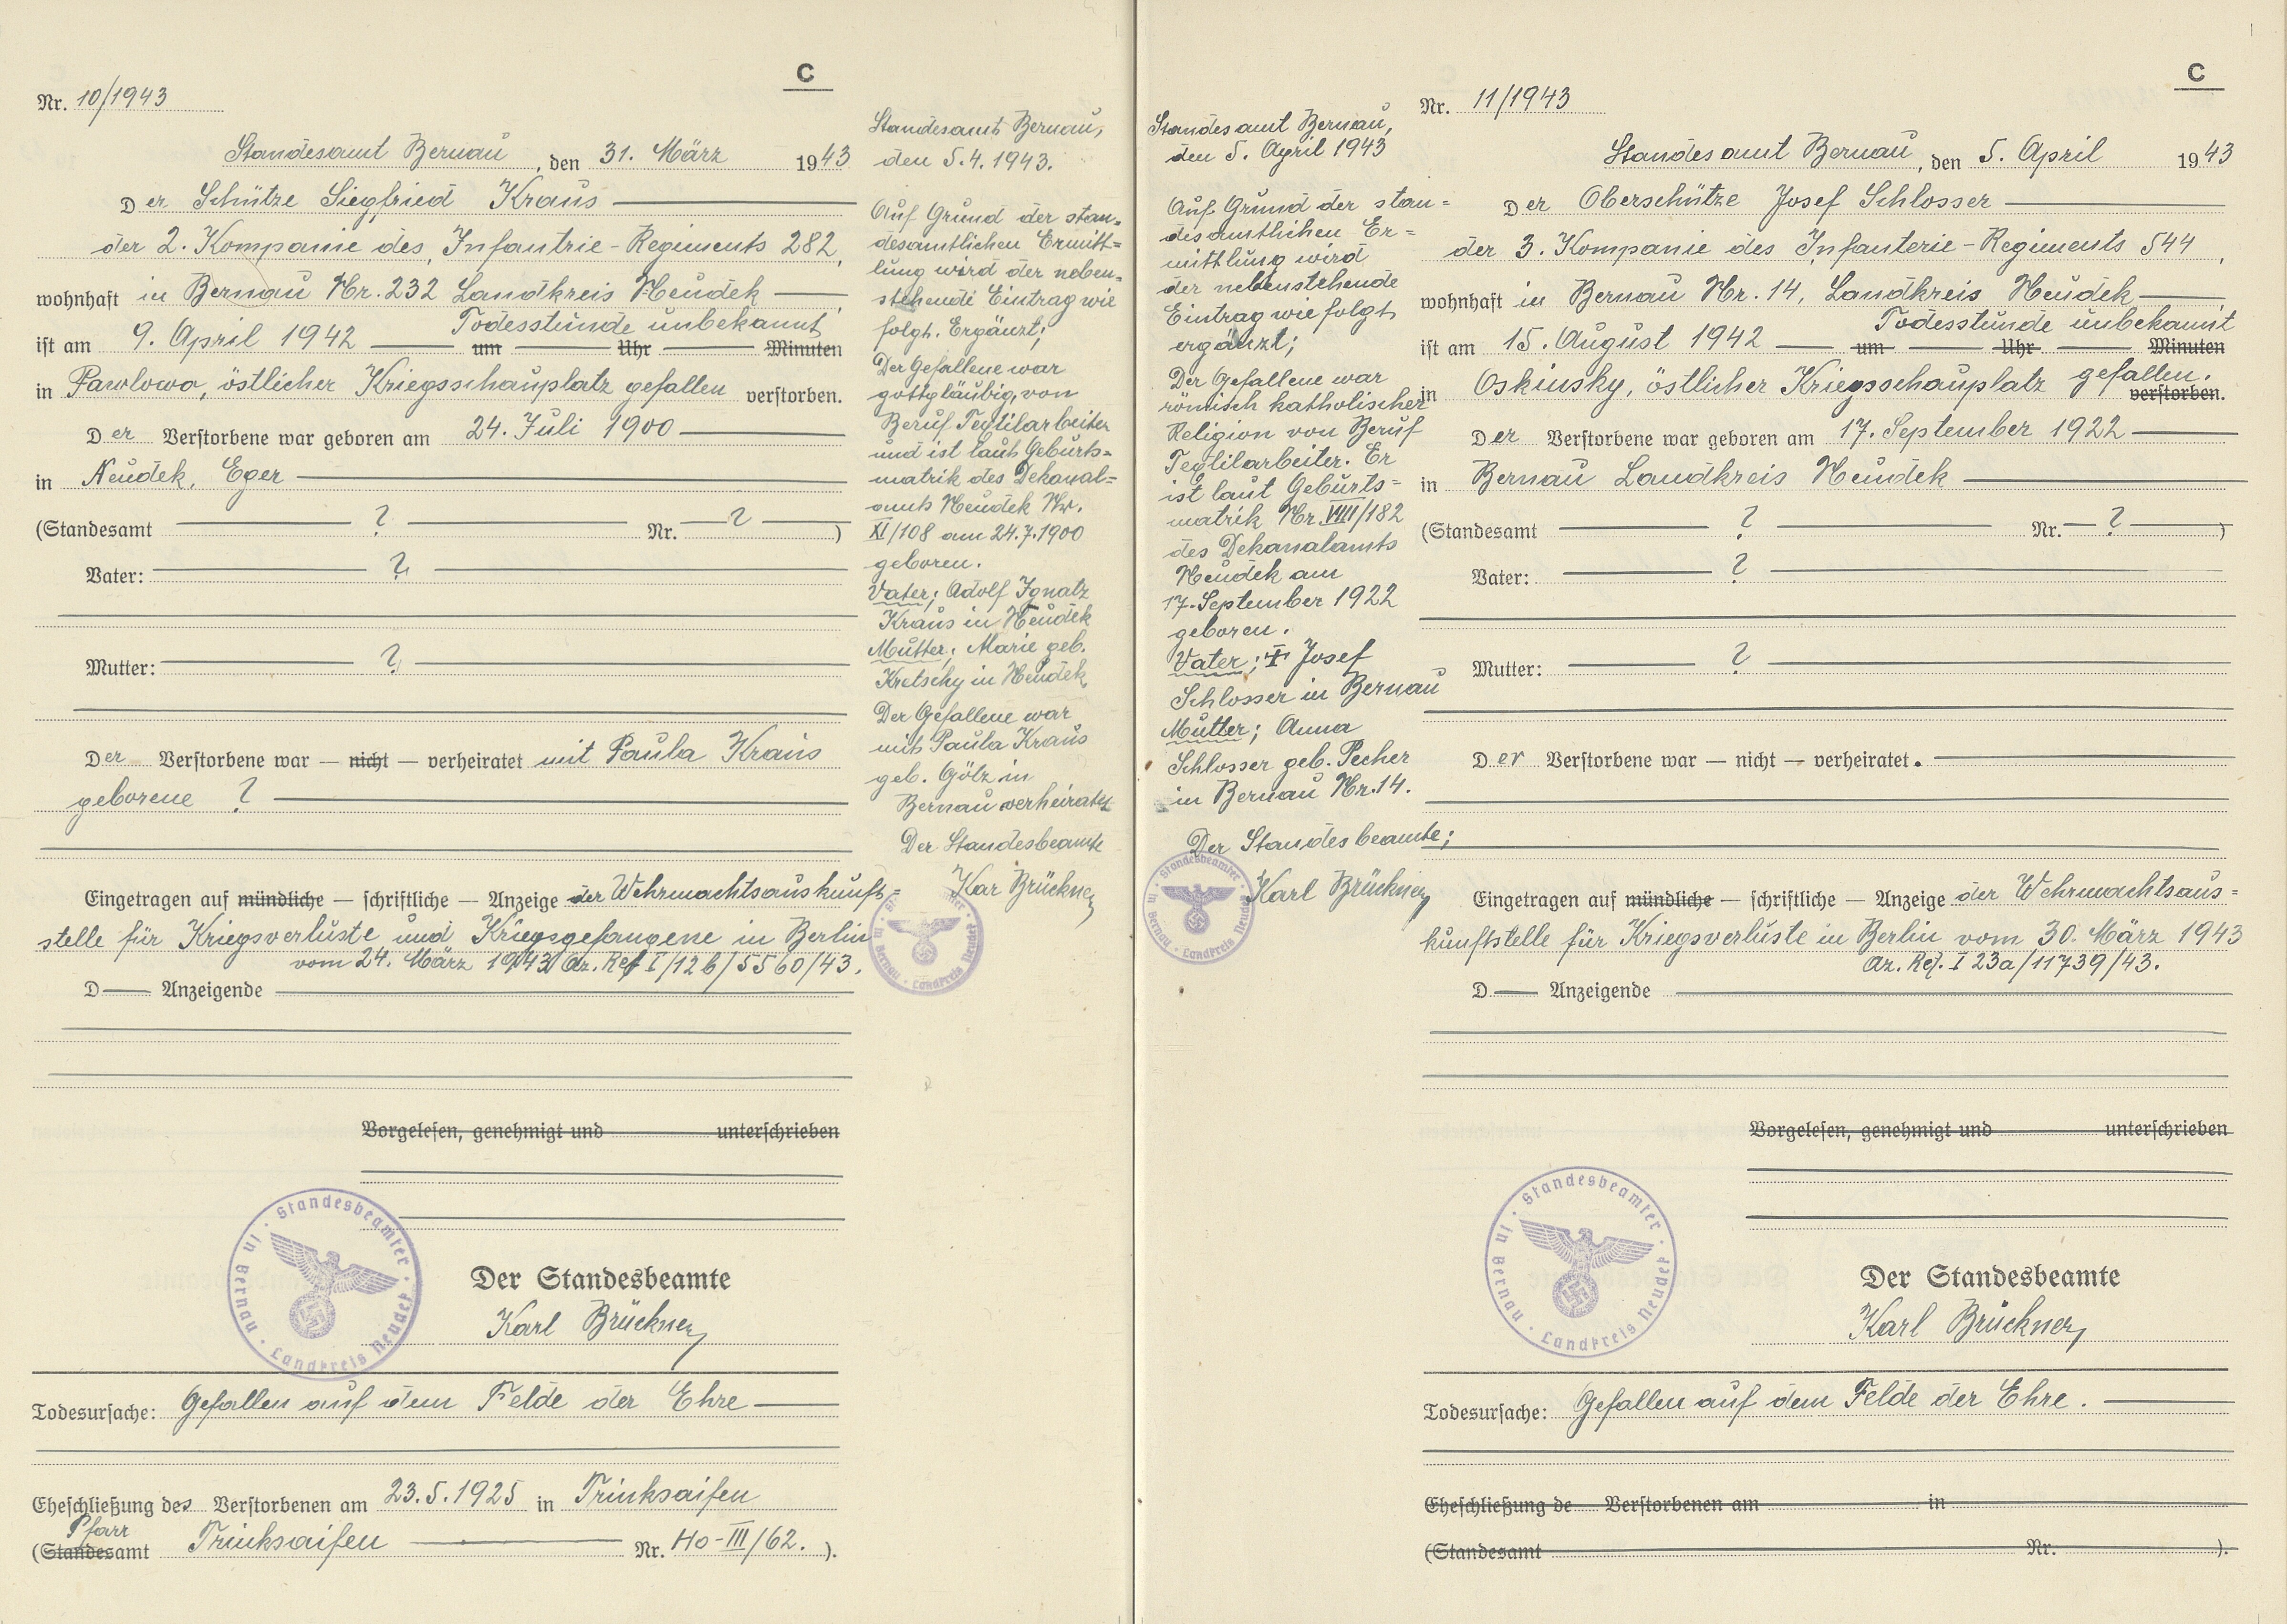 C
Nr. 10/1943
Standesamt Bernau, den 31. März 1943
Der Schütze Siegfried Kraus
der 2. Kompanie des Infantrie-Regiments 282,
wohnhaft in Bernau Nr. 232 Landkreis Neudek
Todesstunde unbekannt
ist am 9. April 1942 um Uhr Minuten
in Pawlowo, östlicher Kriegsschauplatz gefallen verstorben.
Der Verstorbene war geboren am 24. Juli 1900
in Neudek, Eger
(Standesamt ? Nr. ? )
Vater: ?
Mutter: ?
Der Verstorbene war — nicht — verheiratet mit Paula Kraus
geborene ?
Eingetragen auf mündliche — schriftliche — Anzeige der Wehrmachtsauskunft-
stelle für Kriegsverluste und Kriegsgefangene in Berlin
vom 24. März 1943 Az. Ref I/12b/5560/43.
D— Anzeigende
Vorgelesen, genehmigt und unterschrieben
Standesbeamter · in Bernau · Landkreis Neudek
Der Standesbeamte
Karl Brückner
Todesursache: Gefallen auf dem Felde der Ehre
Eheschließung des Verstorbenen am 23.5.1925 in Trinksaifen
Pfarr
(Standesamt Trinksaifen Nr. Ho-III/62. ).
Standesamt Bernau,
den 5.4.1943.
Auf Grund der stan-
desamtlichen Ermitt-
lung wird der neben-
stehende Eintrag wie
folgt. Ergänzt;
Der Gefallene war
gottgläubig, von
Beruf Textilarbeiter
und ist laut Geburts-
matrik des Dekanal-
amts Neudek Nr.
XI/108 am 24.7.1900
geboren.
Vater; Adolf Ignatz
Kraus in Neudek
Mutter; Marie geb.
Kretschy in Neudek
Der Gefallene war
mit Paula Kraus
geb. Gölz in
Bernau verheiratet
Der Standesbeamte
Kar Brückner
Standesbeamter · in Bernau · Landkreis Neudek
Standesamt Bernau,
den 5. April 1943
Auf Grund der stan-
desamtlichen Er-
mittlung wird
der nebenstehende
Eintrag wie folgt
ergänzt;
Der Gefallene war
römisch katholischer
Religion von Beruf
Textilarbeiter. Er
ist laut Geburts-
matrik Nr. VIII/182
des Dekanalamts
Neudek am
17. September 1922
geboren.
Vater; † Josef
Schlosser in Bernau
Mutter; Anna
Schlosser geb. Pecher
in Bernau Nr. 14.
Der Standesbeamte;
Karl Brückner
Standesbeamter · in Bernau · Landkreis Neudek
C
Nr. 11/1943
Standesamt Bernau, den 5. April 1943
Der Oberschütze Josef Schlosser
der 3. Kompanie des Infanterie-Regiments 544,
wohnhaft in Bernau Nr. 14, Landkreis Neudek,
Todesstunde unbekannt
ist am 15. August 1942 um Uhr Minuten
in Oskinsky, östlicher Kriegsschauplatz gefallen. verstorben.
Der Verstorbene war geboren am 17. September 1922
in Bernau Landkreis Neudek
(Standesamt ? Nr. ? )
Vater: ?
Mutter: ?
Der Verstorbene war — nicht — verheiratet.
Eingetragen auf mündliche — schriftliche — Anzeige der Wehrmachtsaus-
kunftstelle für Kriegsverluste in Berlin vom 30. März 1943
Az. Ref. I 23a/11739/43.
D— Anzeigende
Vorgelesen, genehmigt und unterschrieben
Standesbeamter · in Bernau · Landkreis Neudek
Der Standesbeamte
Karl Brückner
Todesursache: Gefallen auf dem Felde der Ehre.
Eheschließung de Verstorbenen am in
(Standesamt Nr. ).